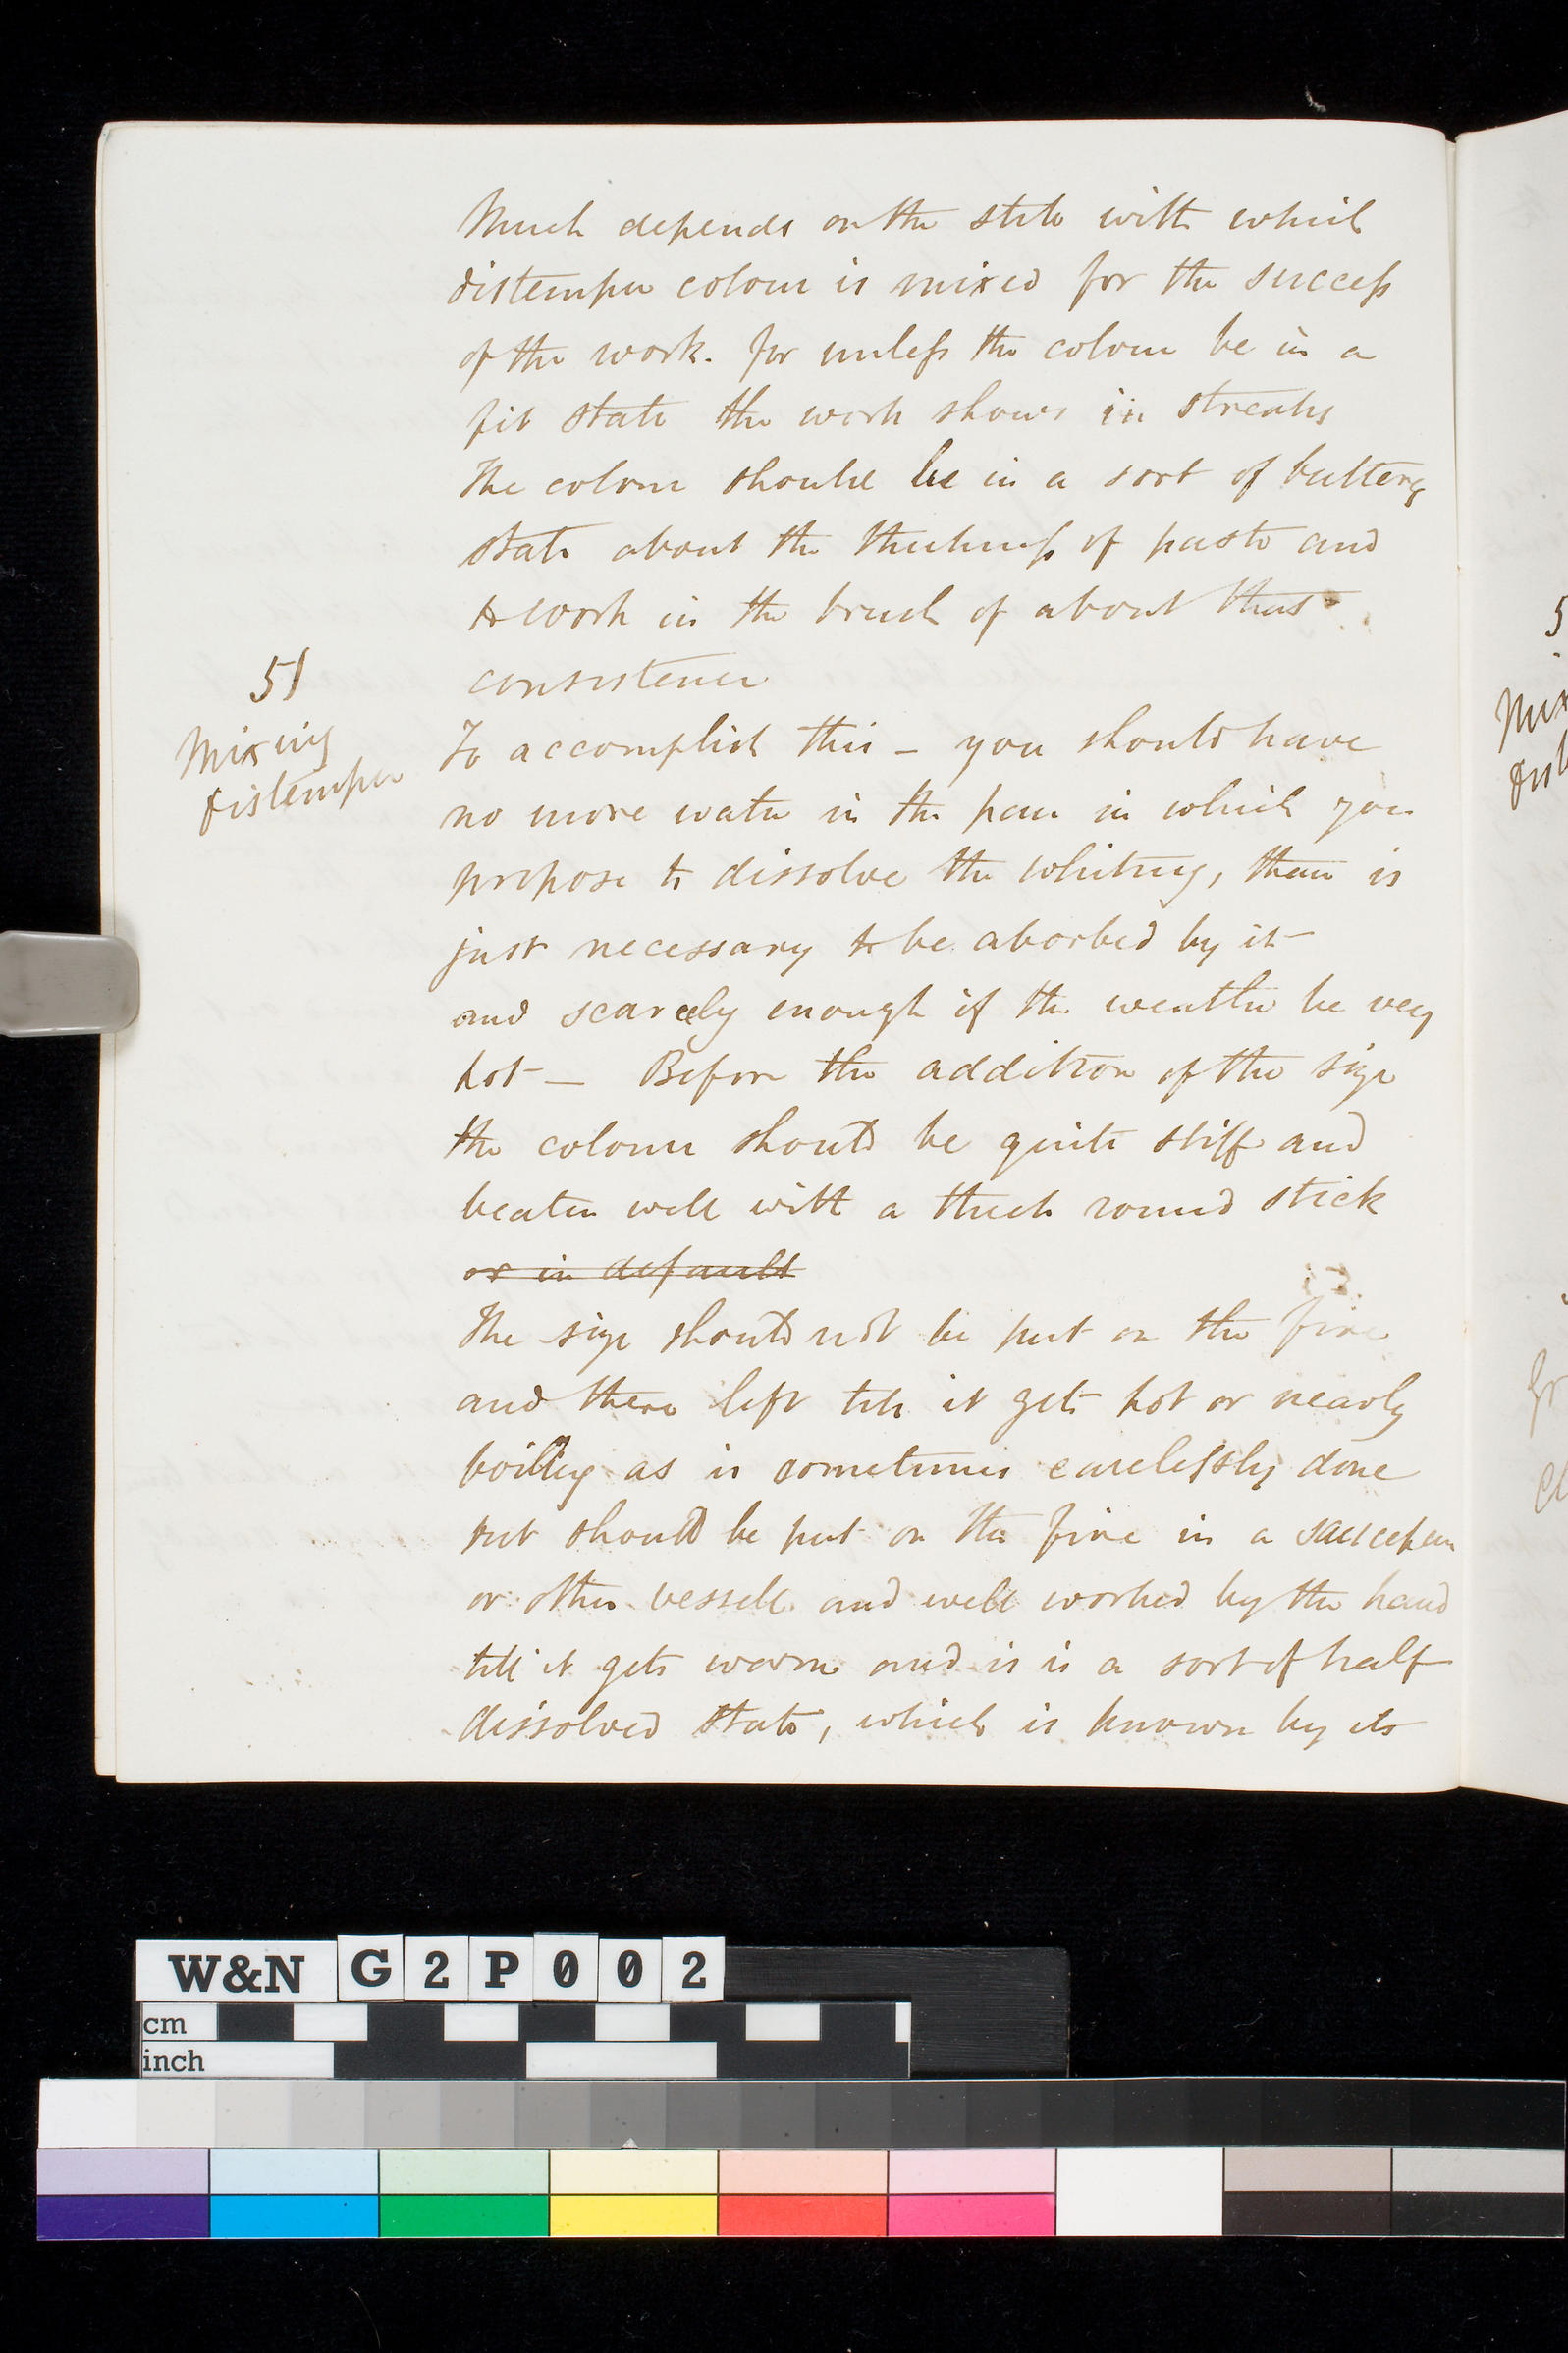 Much depends on the state with which
distemper colour is mixed for the success
of the work. for unless the colour be in a
fit state the work shows in streaks
The colour should be in a sort of buttery
state about the thickness of paste and
to work in the brush of about that
consistence
51
Mixing
distemper
To accomplish this – you should have
no more water in the pan in which you
propose to dissolve the whiting, than is
just necessary to be absorbed by it
and scarcely enough if the weather be very
hot – Before the addition of the size
the colour should be quite stiff and
beaten well with a thick round stick
or in default
The size should not be put on the fire
and there left till it gets hot or nearly
boiling as is sometimes carelessly done
but should be put on the fire in a saucepan
or other vessell and well worked by the hand
till it gets warm and is in a sort of half
dissolved state, which is known by its
5
Mix
dist
W&N G2P002
cm
inch